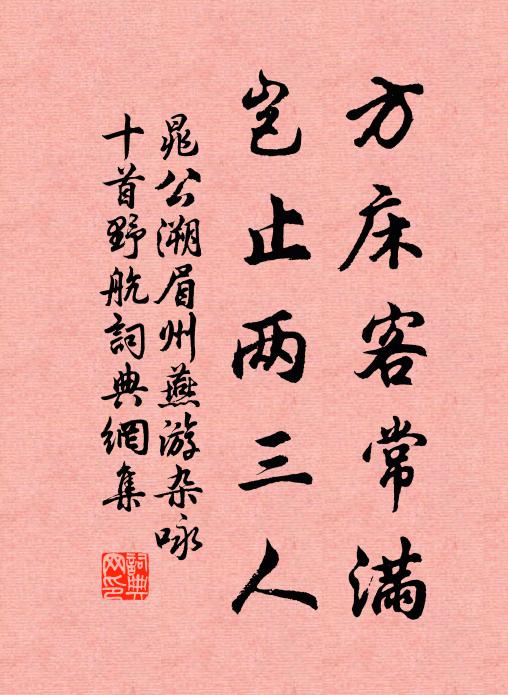 方床客常满
岂止两三人
晁公溯眉州燕游杂咏
十首野航詞典網集
詞典
网印